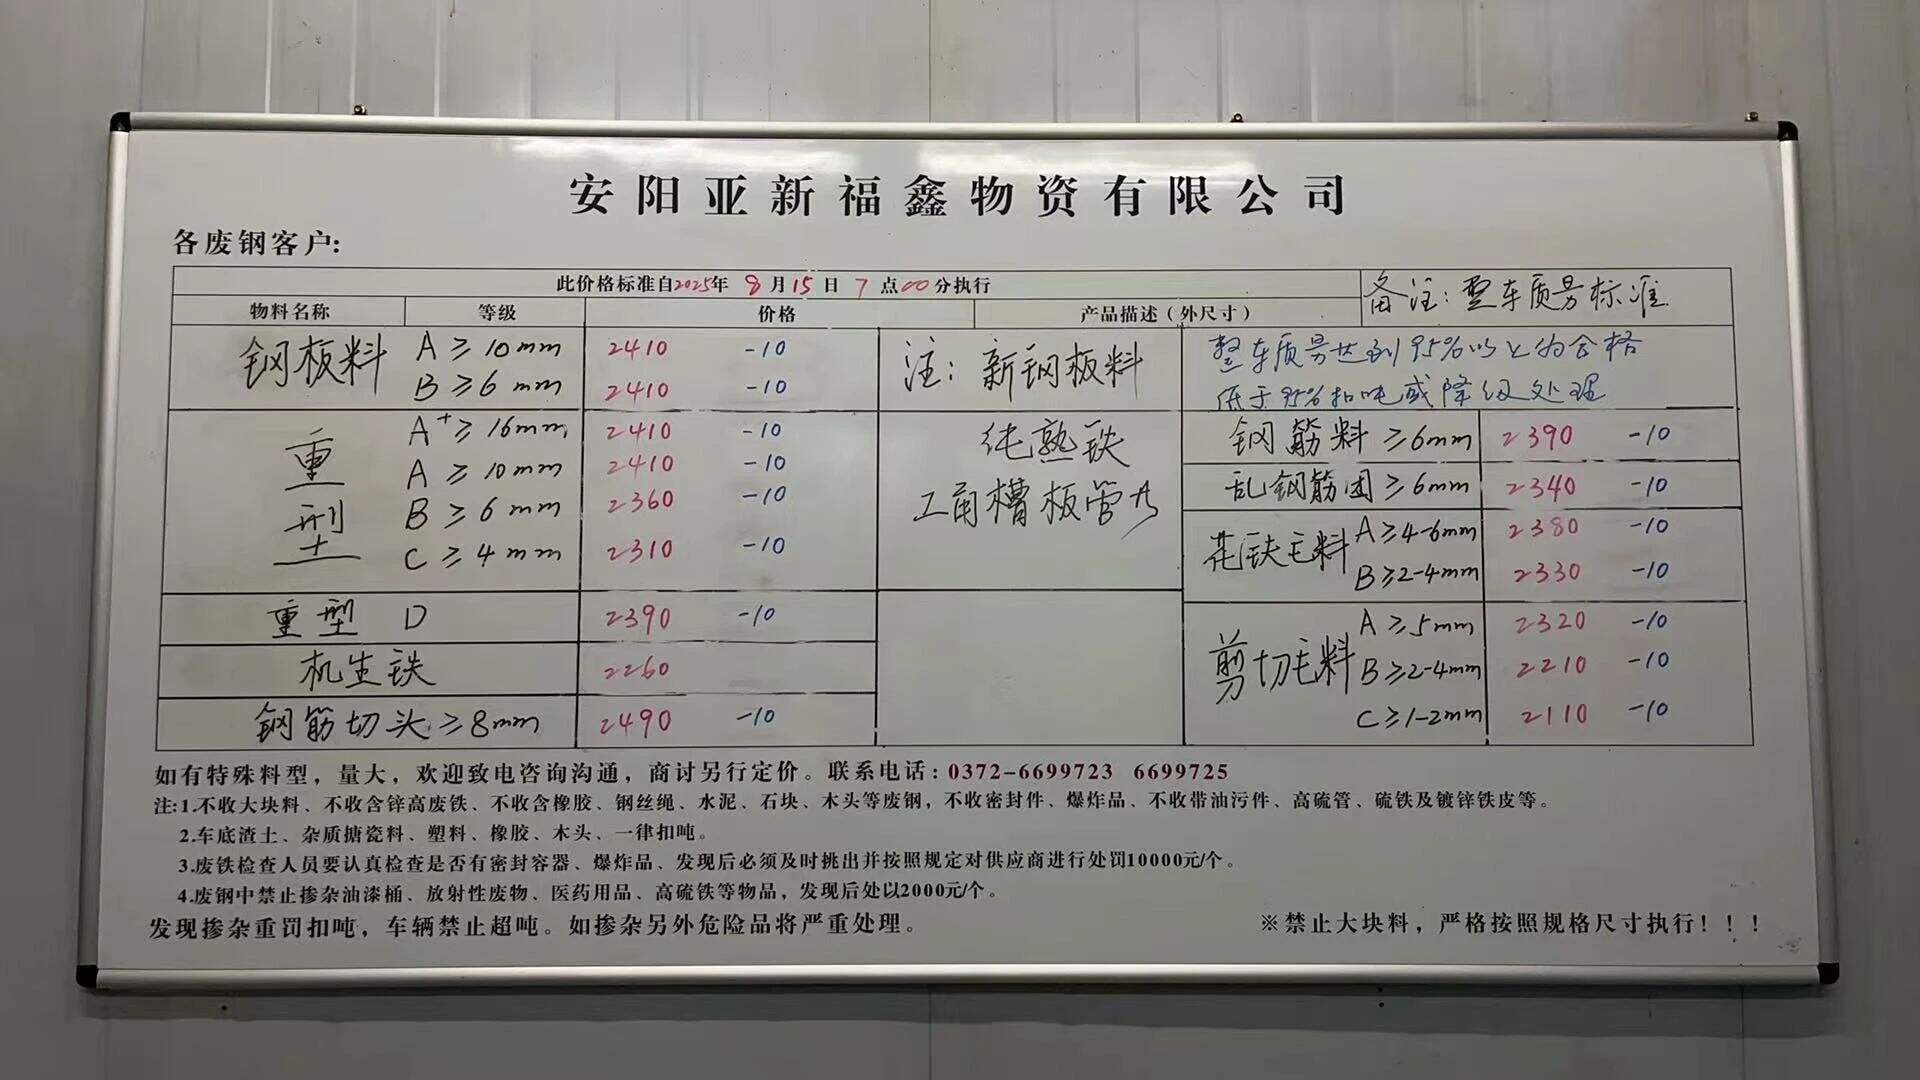 安阳亚新福鑫物资有限公司
各废钢客户:
此价格标准自2025年 8月15日 7点00分执行
备注:整车质另标准
物料名称 等级 价格 产品描述（外尺寸）
钢板料 A≥10mm 2410 -10
B≥6mm 2410 -10
注: 新钢板料
整车质另达到95%以上为合格
低于95%扣吨或降级处理
重型 A+≥16mm 2410 -10
A≥10mm 2410 -10
B≥6mm 2360 -10
C≥4mm 2310 -10
纯熟铁
工角槽板管
重型 D 2390 -10
机生铁 2260
钢筋切头≥8mm 2490 -10
钢筋料≥6mm 2390 -10
乱钢筋团≥6mm 2340 -10
花铁毛料 A≥4-6mm 2380 -10
B≥2-4mm 2330 -10
剪切毛料 A≥5mm 2320 -10
B≥2-4mm 2210 -10
C≥1-2mm 2110 -10
如有特殊料型，量大，欢迎致电咨询沟通，商讨另行定价。联系电话：0372-6699723 6699725
注:1.不收大块料、不收含锌高废铁、不收含橡胶、钢丝绳、水泥、石块、木头等废钢，不收密封件、爆炸品、不收带油污件、高硫管、硫铁及镀锌铁皮等。
2.车底渣土、杂质搪瓷料、塑料、橡胶、木头、一律扣吨。
3.废铁检查人员要认真检查是否有密封容器、爆炸品、发现后必须及时挑出并按照规定对供应商进行处罚10000元/个。
4.废钢中禁止掺杂油漆桶、放射性废物、医药用品、高硫铁等物品，发现后处以2000元/个。
发现掺杂重罚扣吨，车辆禁止超吨。如掺杂另外危险品将严重处理。
※禁止大块料，严格按照规格尺寸执行！！！